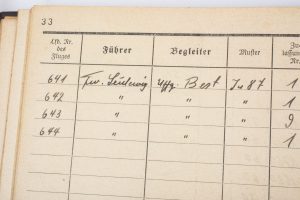 33
Lfd. Nr. des Fluges Führer Begleiter Muster Zu- lassungs- Nr.
641 Fw. Ludwig Uffz. Best Ju 87 1
642 " " " 1
643 " " " 9
644 " " " 1